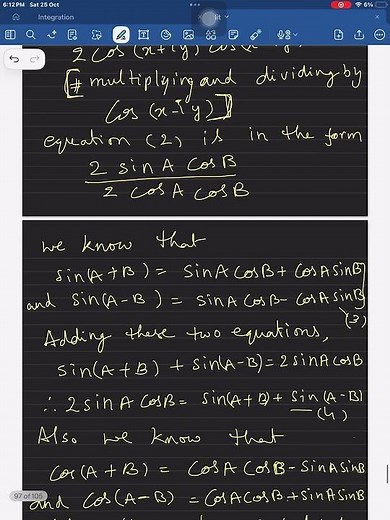 6:12 PM Sat 25 Oct
6%
Integration
2 cos (x+iy) cos
[# multiplying and dividing by
cos (x-iy)]
equation (2) is in the form
2 sin A cos B
2 cos A cos B
we know that
sin(A+B) = sin A cos B + cos A sin B
and sin(A-B) = sin A cos B - cos A sin B
(3)
Adding these two equations,
sin(A+B) + sin(A-B) = 2 sin A cos B
∴ 2 sin A cos B = sin(A+B) + sin(A-B)
(4)
Also we know that
cos(A+B) = cos A cos B - sin A sin B
97 of 105
and cos(A-B) = cos A cos B + sin A sin B